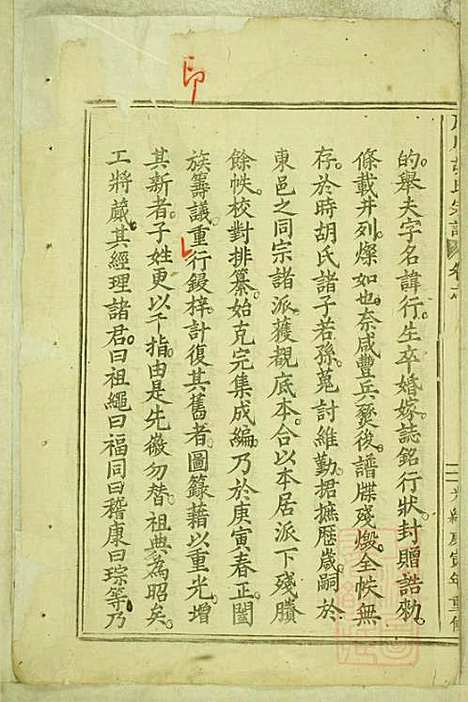 印
胡氏宗譜
光緒庚寅年重修
的舉夫字名諱行生卒婚嫁誌銘行狀封贈誥勅
條載井列燦如也奈咸豐兵燹後譜牒殘燬全帙無
存於時胡氏諸子若孫蒐討維勤捃摭歷歲嗣於
東邑之同宗諸派獲覩底本合以本居派下殘牘
餘帙校對排纂始克完集成編乃於庚寅春正闔
族籌議重行鋟梓計復其舊者圖籙藉以重光增
其新者子姓更以千指由是先徽勿替祖典為昭矣
工將蕆其經理諸君曰祖繩曰福同曰稽康曰琮等乃